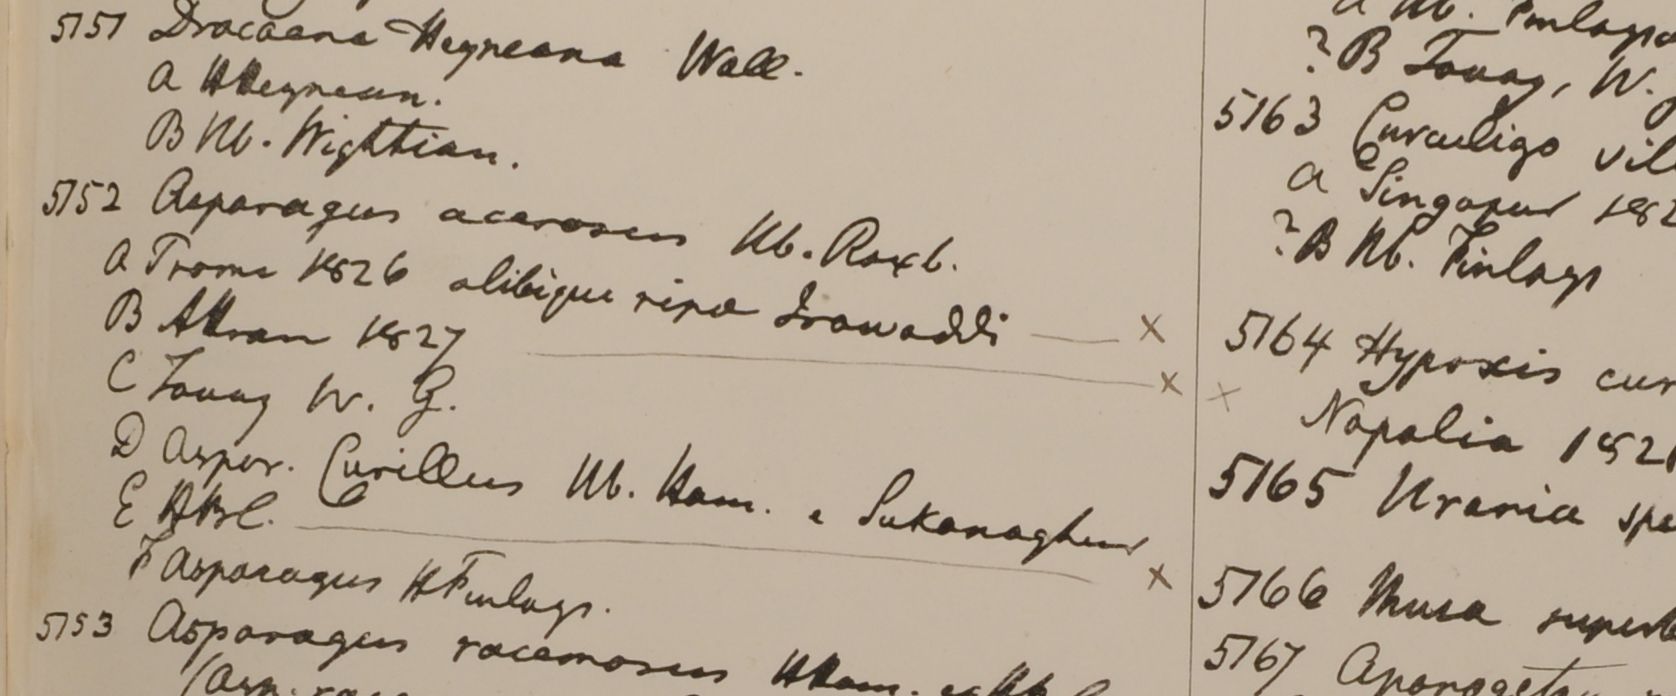 5151 Dracaena Heyneana Wall.
A HHeynean.
B Hb. Wightian.
5152 Asparagus acerosus Hb. Roxb.
A Prome 1826 alibique ripae Irawaddi — x
B Attran 1827 x
C Tavoy W. G.
D Aspar. Curillus Hb. Ham. e Sukanaghur
E HBC. x
F Asparagus HFinlays.
5153 Asparagus racemosus HHam.
a Hb. Finlays
?B Tavoy, W.
5163 Curculigo vil
a Singapur 182
?B Hb. Finlays
5164 Hypoxis cur
x Napalia 1821
5165 Urania spe
5166 Musa superb
5167 Aponoget